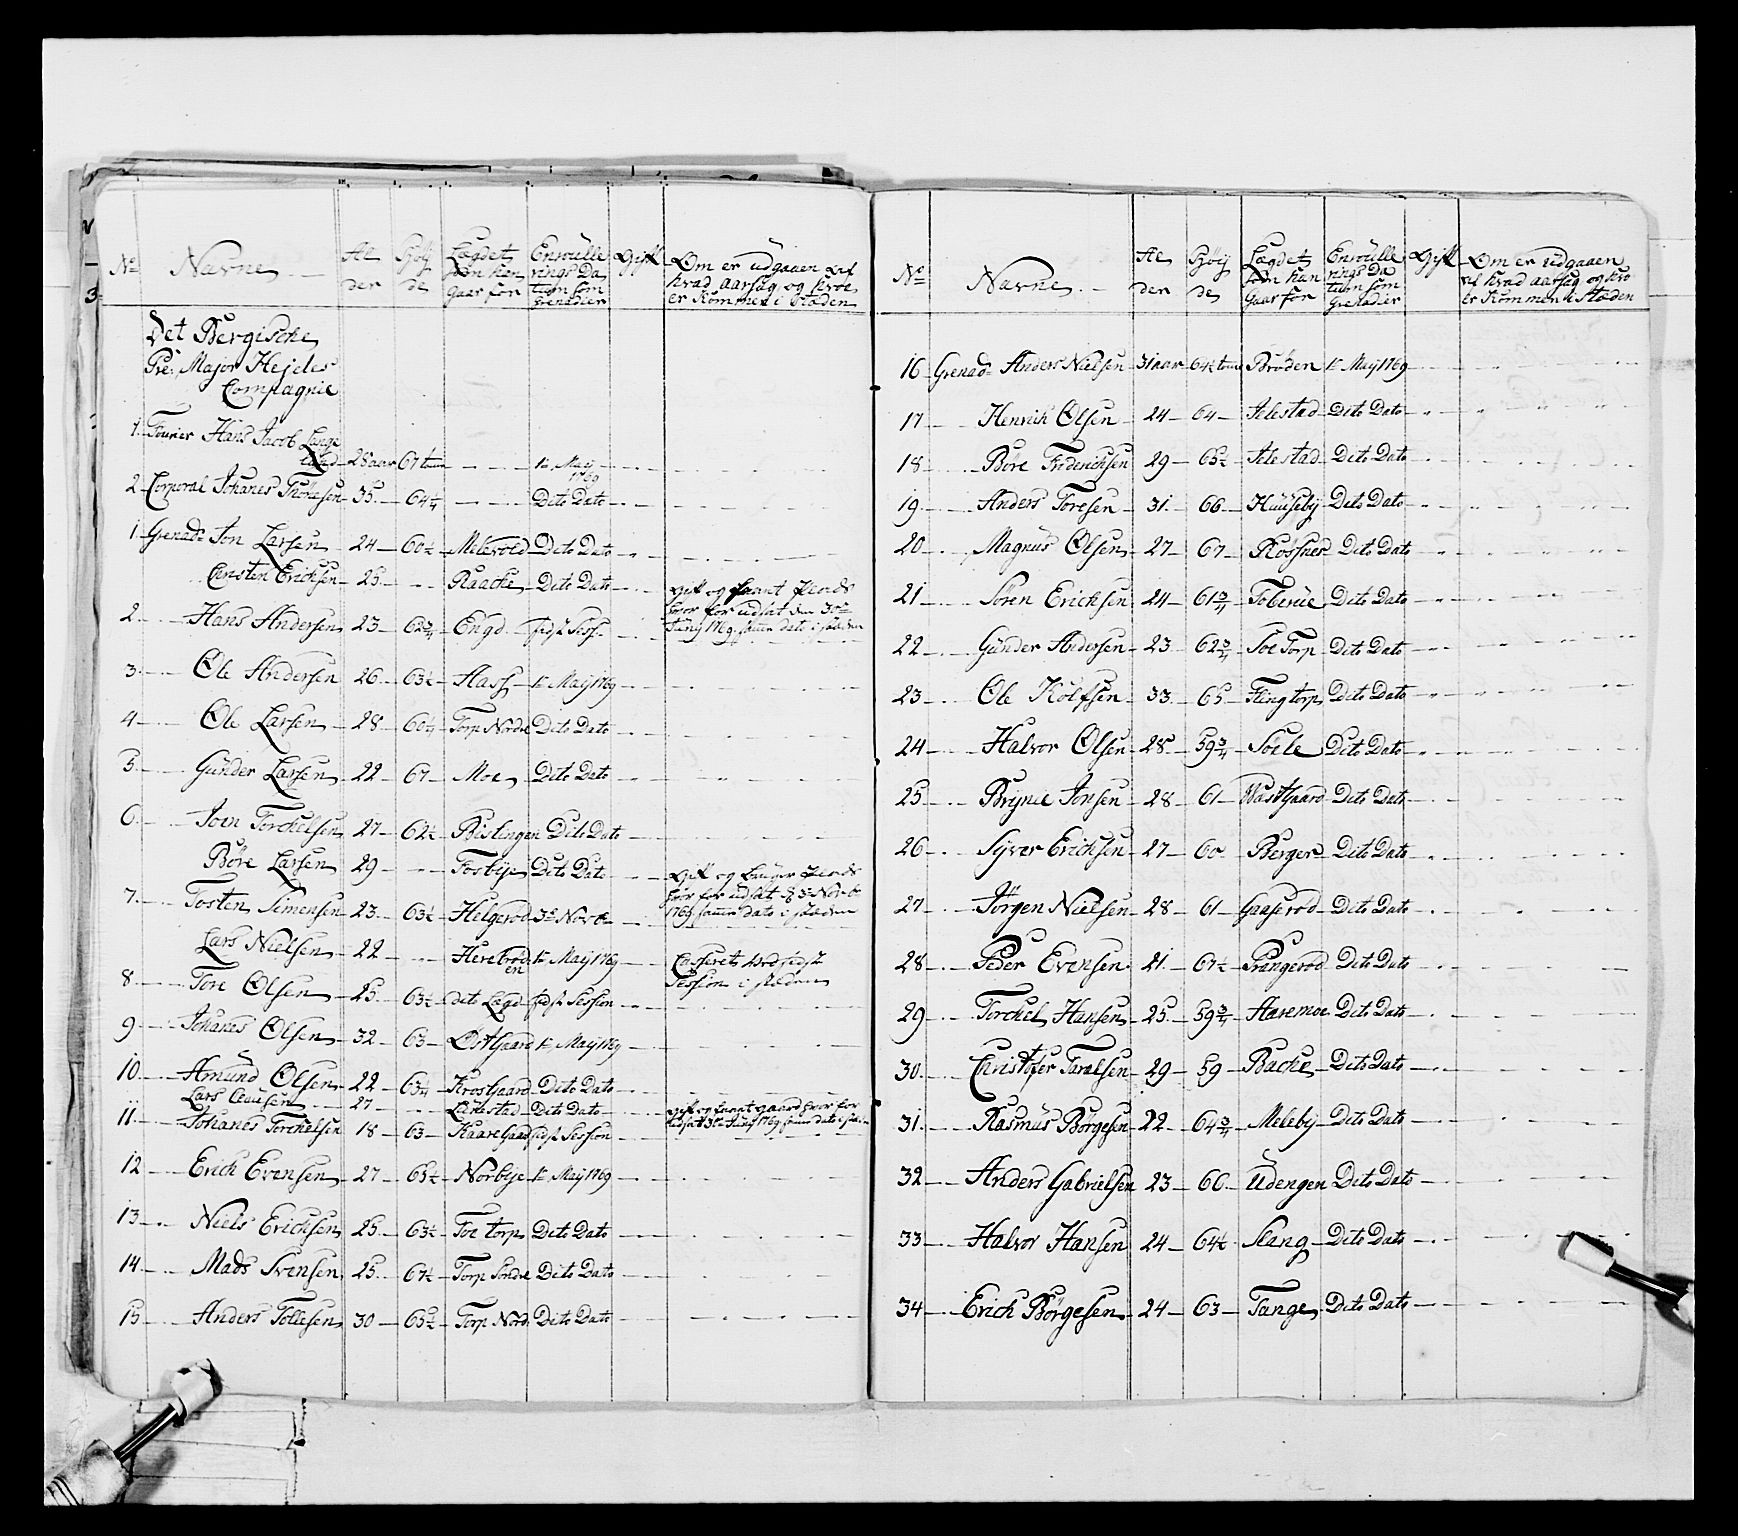 No Navne Al der Høij de Lægdet som han gaar for Enroulle rings Da tum som Grenadier Gift Om er udgaaen af hvad aarsag og hvo er Kommen i Stæden
Det Bergische
Pre: Major Hejdes
Compagnie
1. Fourier Hans Jacob Lange
land 28 aar 67 1te Maij 1769
2 Corporal Johanes 35. 64¼ Dito Dato
1. Grenadr Jon Larsen 24 60½ Dito Dato
Christen Erichsen 25. Raache Dito Dato gift og
2. Hans Andersen 23 62¾ Engd. sidst Sess. for udsat den 30te Junij 1769. samme dato i stæden
3. Ole Andersen 26. 63½ Aass 1te Maij 1769
4 Ole Larsen 28 60¼ Torp Nordre Dito Dato
5. Gunder Larsen 22 67 Moe Dito Dato
6. Joen Torchelsen 27 62½ Bislingen Dito Dato
Børe Larsen 29 Fosbye Dito Dato gift og
7. Tosten Simensen 23. 63½ Helgerød 3de Novbr for udsat d 3de Novbr 1769 samme dato i stæden
Lars Nielsen 22 Herrebrøden 1te Maij 1769 Casseret ved sidste
8 Tore Olsen 25. 63½ dito Lægd sidst Session Session i stæden
9 Johanes Olsen 32 63 Østgaard 1te Maij 1769
10. Amund Olsen 22 63¼ Dito Dato
Lars Clausen 27 Dito Dato gift og gaard hvor for
11. Johanes Torchelsen 18 63 Kaare Gaad sidst Session udsat 30te Junij 1769 samme dato i stæden
12 Erich Evensen 27 65½ Norbye 1te Maij 1769
13 Niels Erichsen 25 63½ Toe torp Dito Dato
14. Mads Svensen 25. 67½ Torp Søndre Dito Dato
15 Anders Tollesen 30 65½ Torp Nord. Dito Dato
No Navne Al der Høij de Lægdet som han gaar for Enroulle rings Da tum som Grenadier Gift Om er udgaaen af hvad aarsag og hvo er Kommen i Stæden
16 Grenadr Anders Nielsen 31 aar 64½ Brøden 1te Maij 1769
17 Henrich Olsen 24 64 Jelestad Dito Dato
18 Børe Friderichsen 29 65½ Jelestad Dito Dato
19 Anders Toresen 31. 66 Huuseby Dito Dato
20 Magnus Olsen 27 67 Røssner Dito Dato
21 Søren Erichsen 24 61¾ Toberüe Dito Dato
22 Gunder Andersen 23 62¾ Toe Torp Dito Dato
23 Ole Rolfsen 33. 65 Flengtorp Dito Dato
24 Halvor Olsen 28. 59¾ Søele Dito Dato
25 Brynel Jonsen 28 61 Wastgaard Dito Dato
26 Syver Erichsen 27 60 Berger Dito Dato
27 Jörgen Nielsen 28 61 Gaaserød Dito Dato
28 Peder Evensen 21. 67½ Prangerød Dito Dato
29 Torchel Hansen 25. 59¾ Haremoe Dito Dato
30. Christofer Taralsen 29 59 Bache Dito Dato
31. Rasmus Börgesen 22 64¾ Meleby Dito Dato
32 Anders Gabrielsen 23 66 Udengen Dito Dato
33 Halvor Hansen 24 64½ Stang Dito Dato
34 Erich Börgesen 24 63 Tange Dito Dato